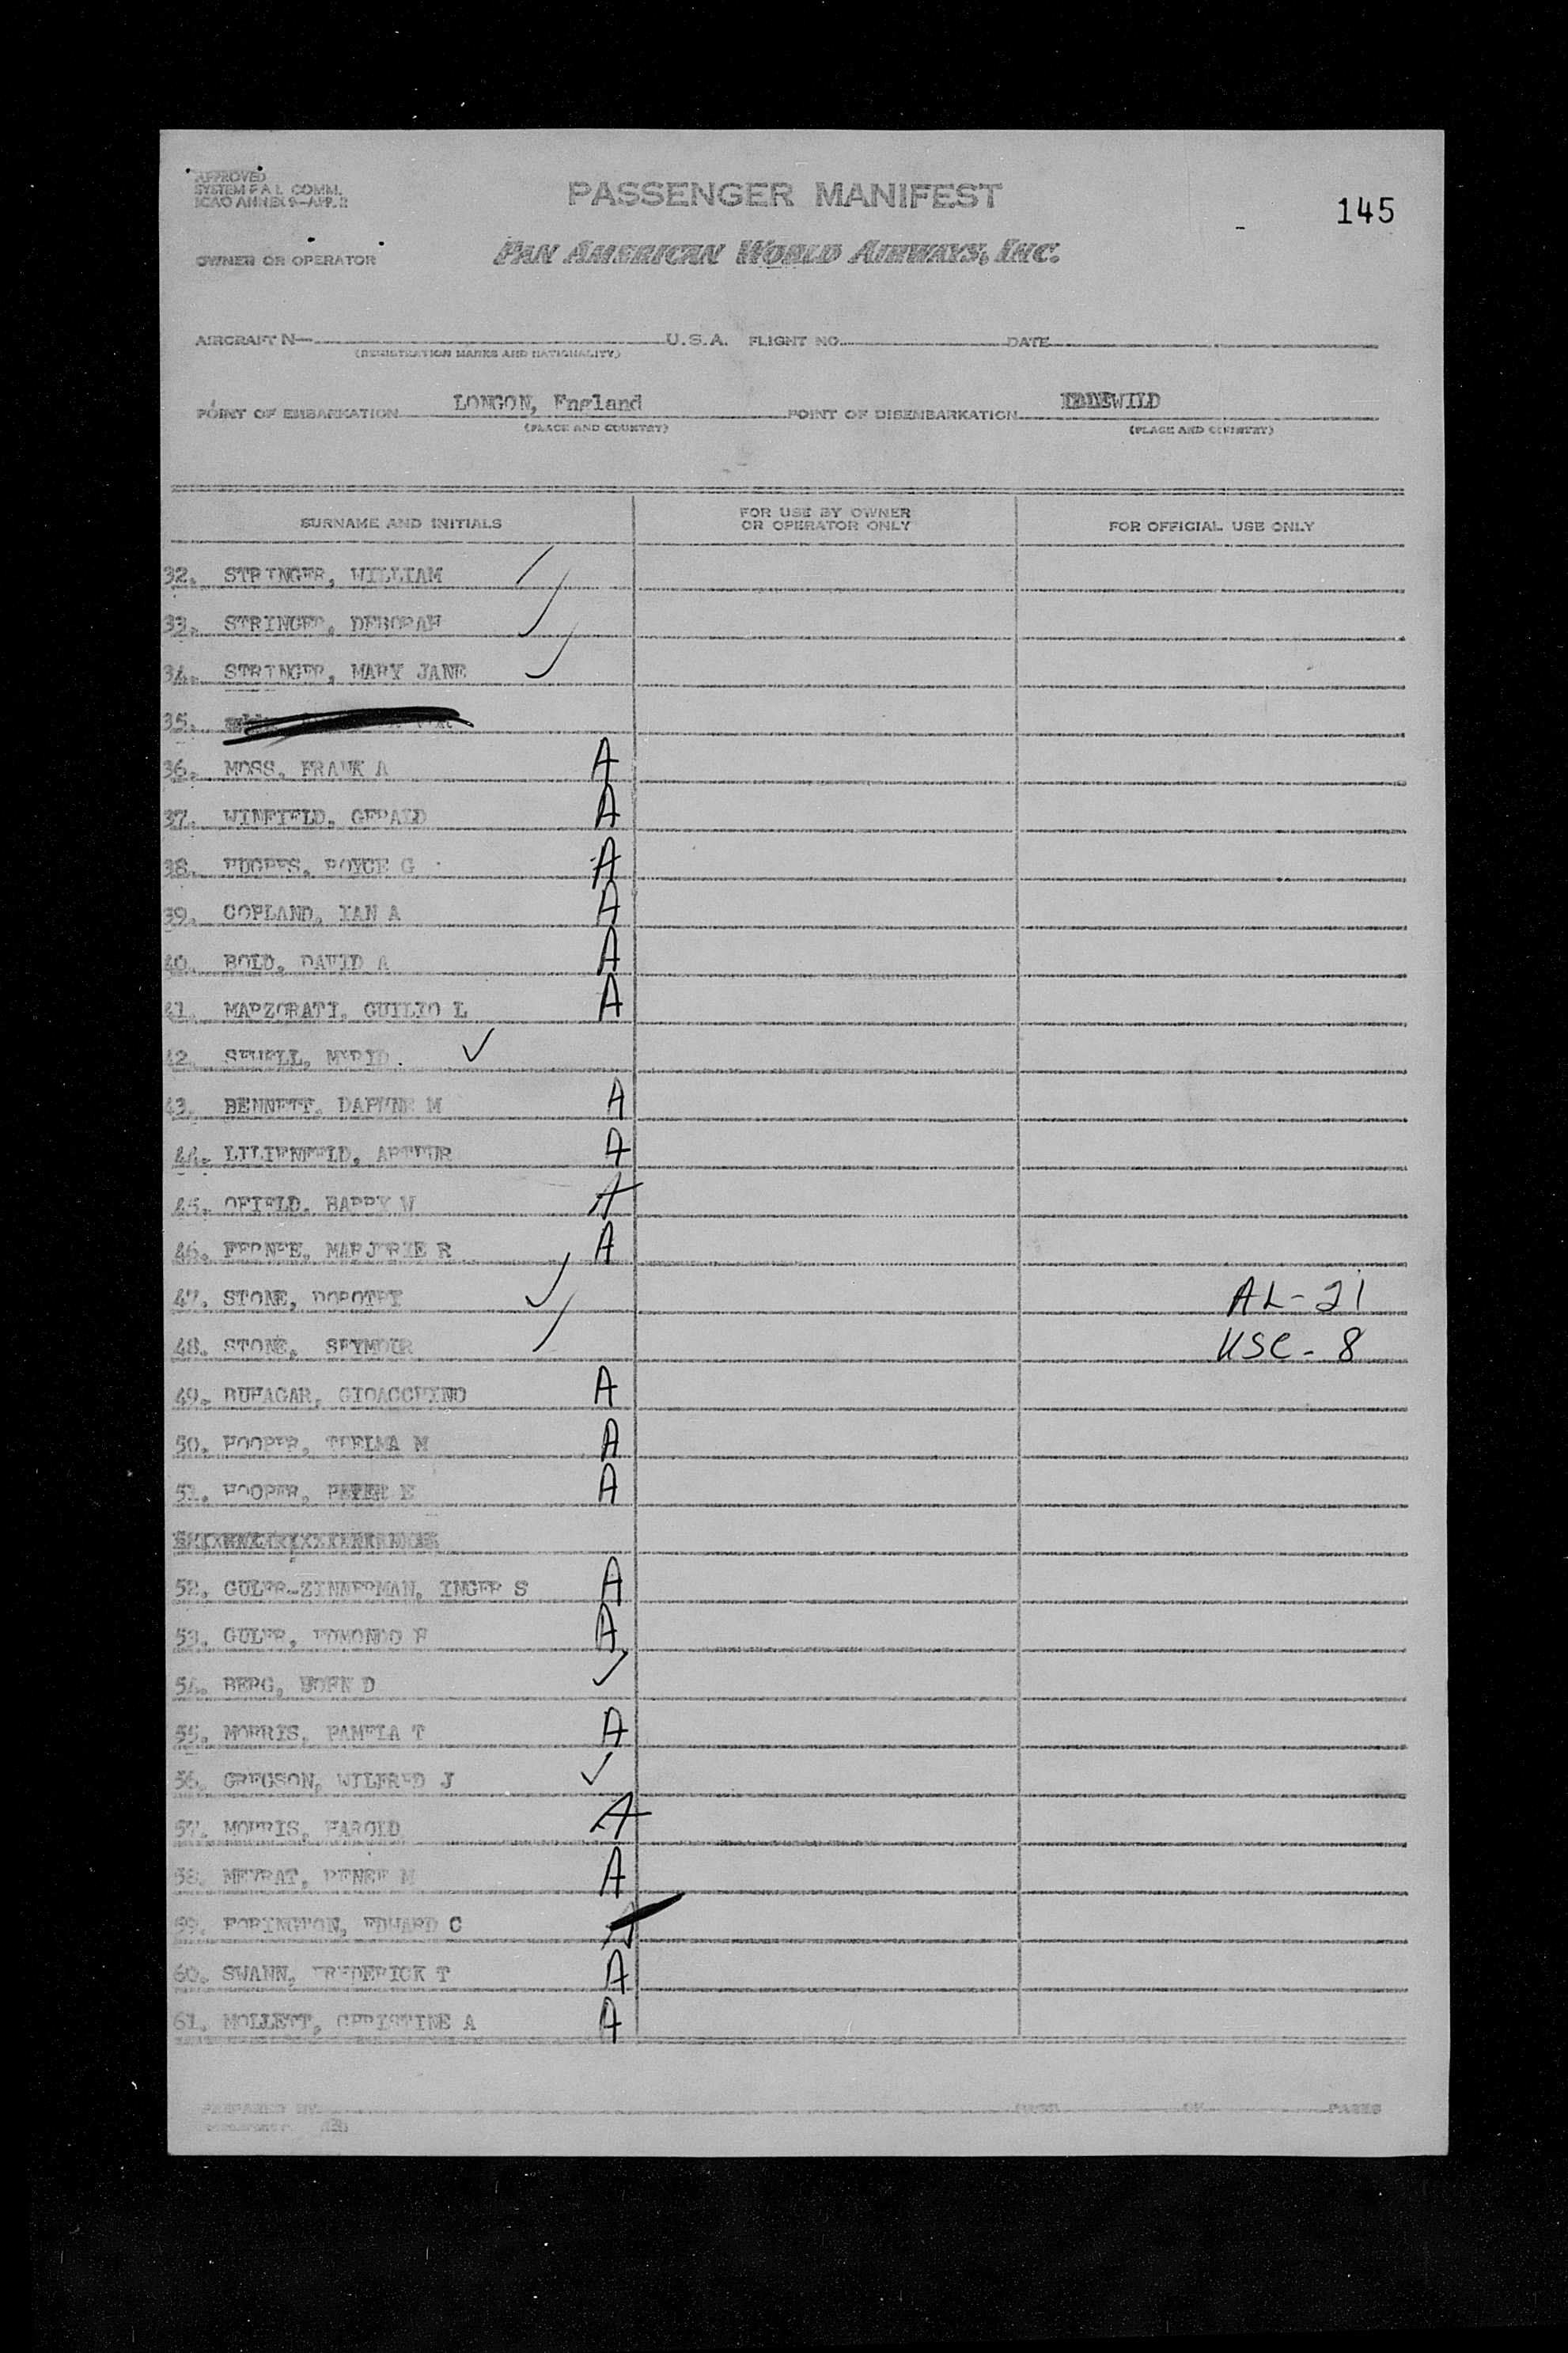 APPROVED
SYSTEM F A L COMM.
ICAO ANNEX 9—APP. 2
PASSENGER MANIFEST
145
OWNER OR OPERATOR
PAN AMERICAN WORLD AIRWAYS, INC.
AIRCRAFT N— U.S.A. FLIGHT NO. DATE
(REGISTRATION MARKS AND NATIONALITY)
POINT OF EMBARKATION LONGON, England POINT OF DISEMBARKATION IDLEWILD
(PLACE AND COUNTRY) (PLACE AND COUNTRY)
SURNAME AND INITIALS FOR USE BY OWNER OR OPERATOR ONLY FOR OFFICIAL USE ONLY
32. STRINGER, WILLIAM ✓
33. STRINGER, DEBORAH ✓
34. STRINGER, MARY JANE ✓
35.
36. MOSS, FRANK A A
37. WINFIELD, GERALD A
38. HUGHES, ROYCE G A
39. COPLAND, IAN A A
40. BOLD, DAVID A A
41. MARZORATI, GUILIO L A
42. SEWELL, ✓
43. BENNETT, DAPHNE M A
44. LILIENFELD, ARTHUR A
45. OFIELD, HARRY W A
46. MARJORIE R A
47. STONE, DOROTHY ✓ AL-21
48. STONE, SEYMOUR ✓ USC-8
49. BUHAGAR, GIOACCHINO A
50. HOOPER, THELMA M A
51. HOOPER, PETER E A
52. GULER-ZINNERMAN, INGER S A
53. GULER, EDMONDO F A
54. BERG, D ✓
55. MORRIS, PAMELA T A
56. GREGSON, WILFRED J ✓
57. MORRIS, HAROLD A
58. MEYRAT, RENEE M A
59. EDWARD C
60. SWANN, FREDERICK T A
61. MOLLETT, CHRISTINE A A
PREPARED BY PAGE OF PAGES